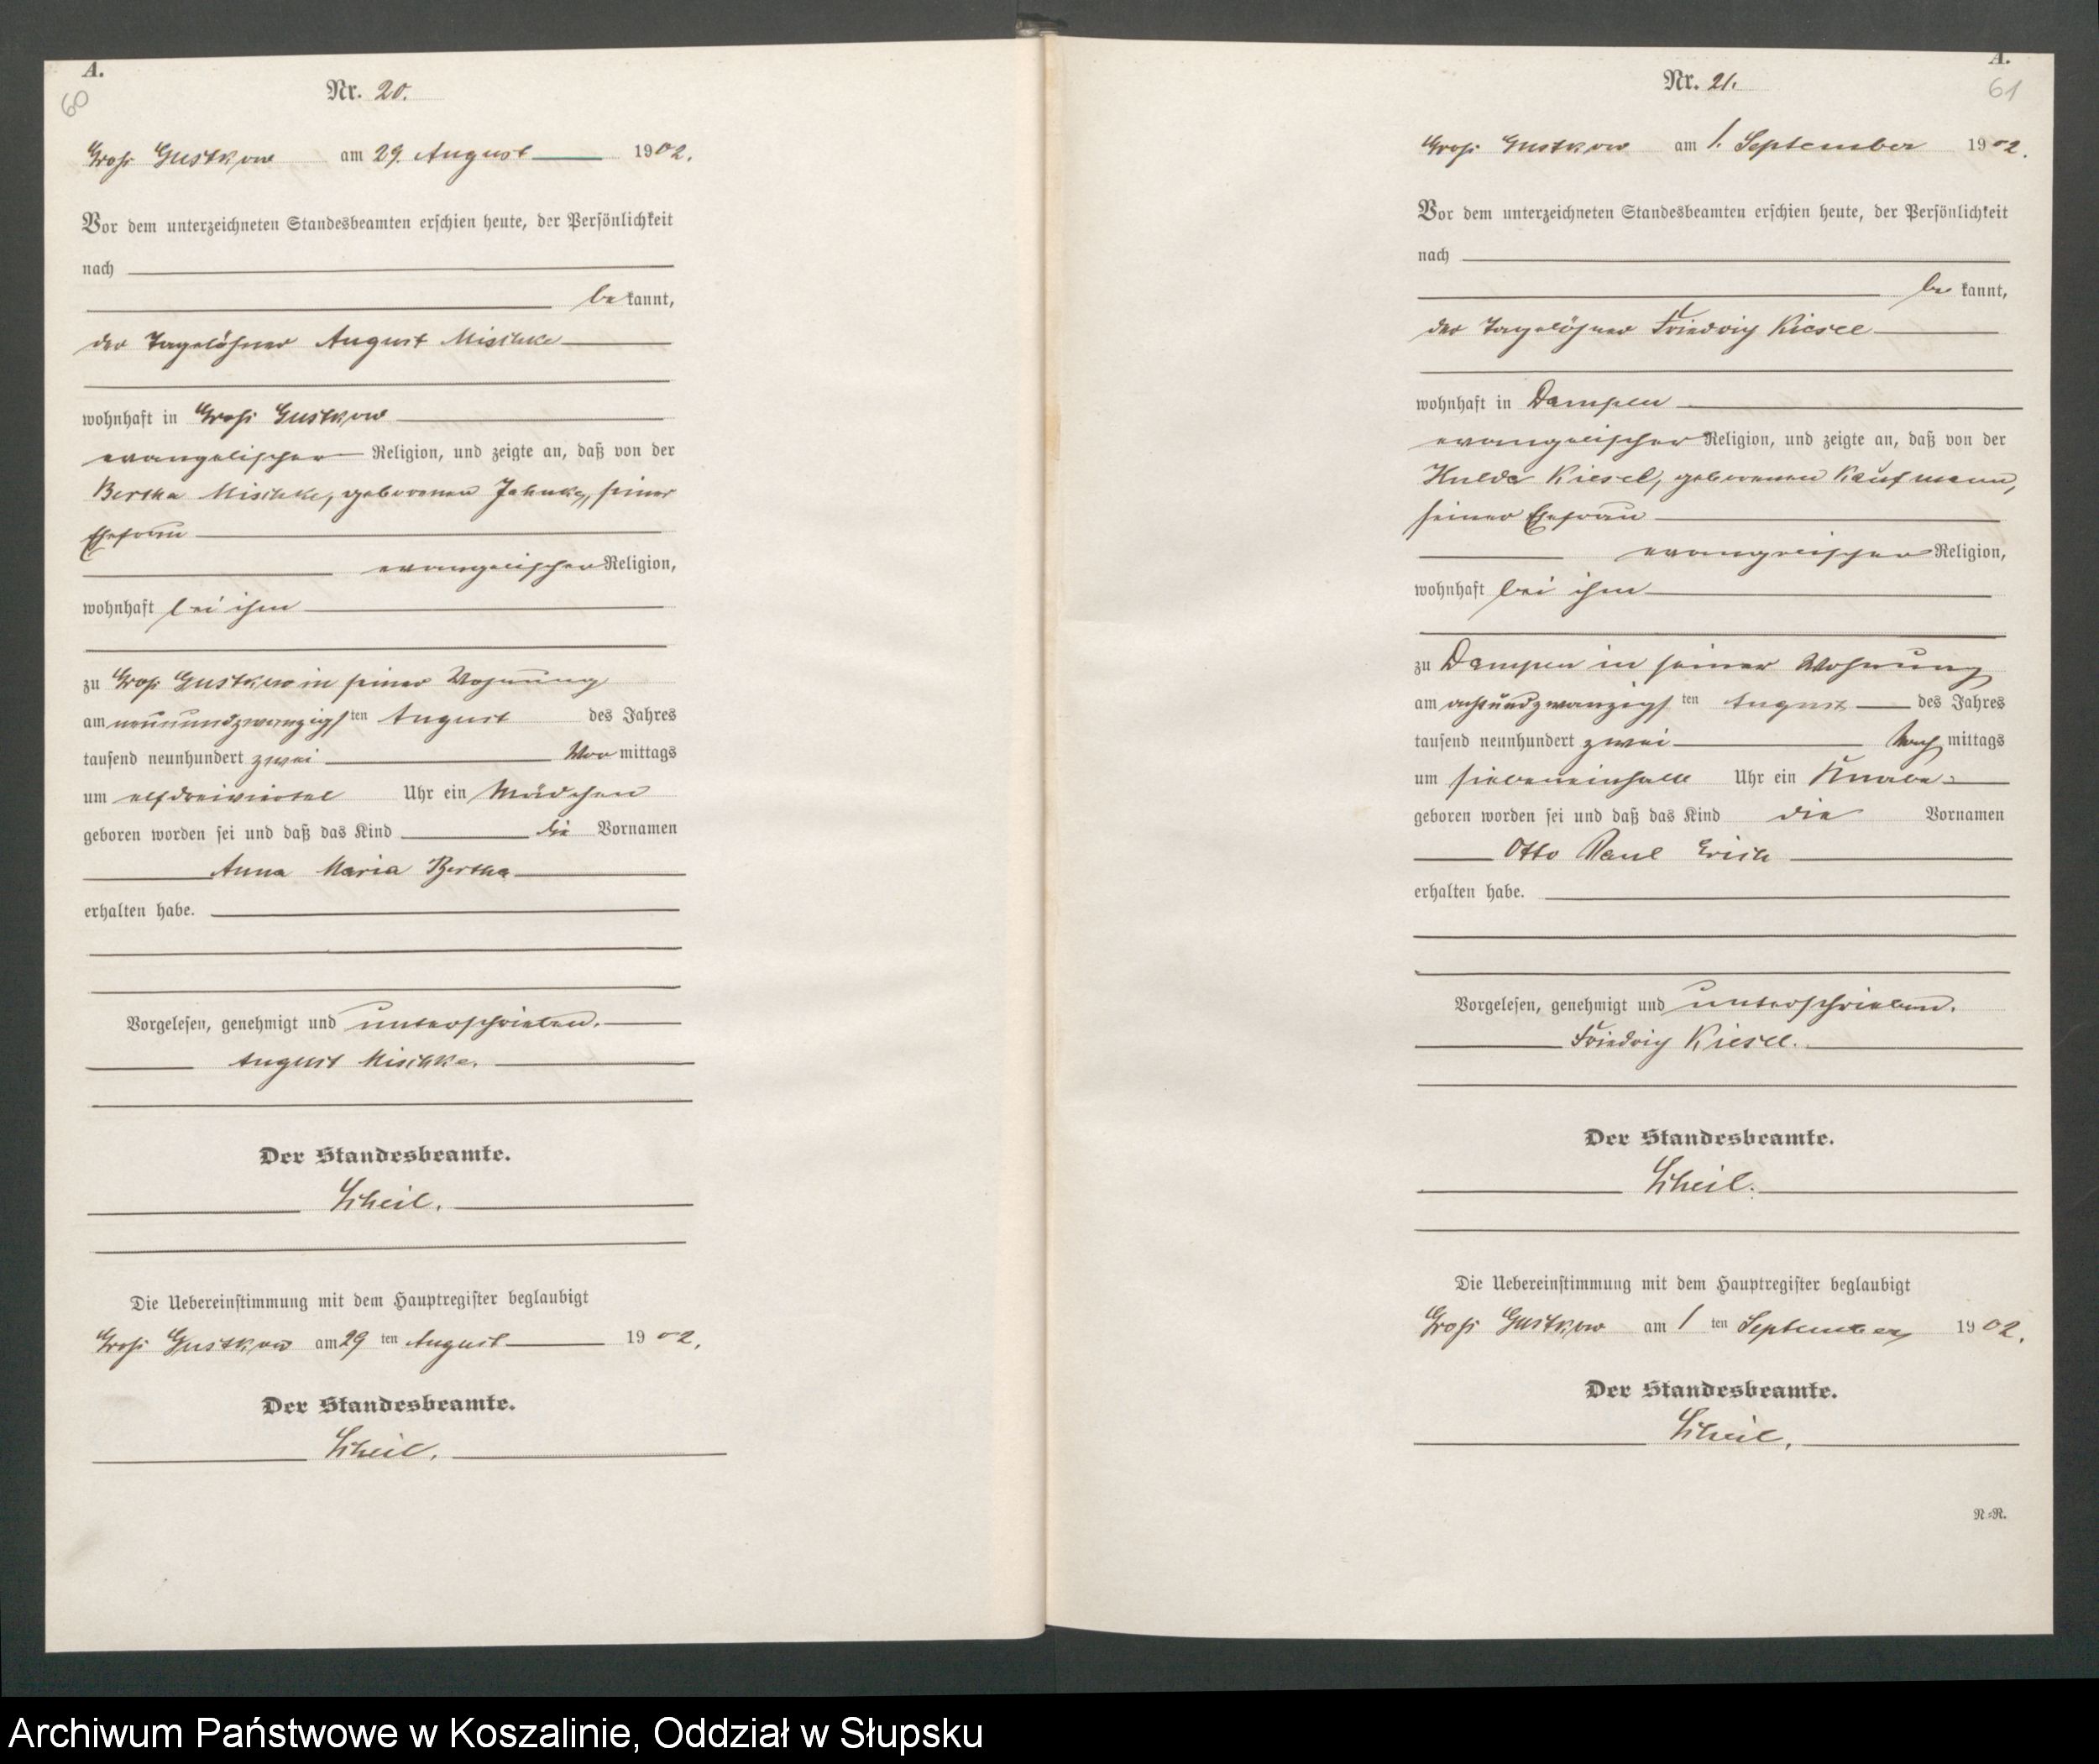 A.
60
Nr. 20.
Groß Gustkow am 29. August 1902.
Vor dem unterzeichneten Standesbeamten erschien heute, der Persönlichkeit
nach
be kannt,
der Tagelöhner August Mischke
wohnhaft in Groß Gustkow
evangelischer Religion, und zeigte an, daß von der
Bertha Mischke, geborenen Jahnke, seiner
Ehefrau
evangelischer Religion,
wohnhaft bei ihm
zu Groß Gustkow in seiner Wohnung
am neunundzwanzigsten August des Jahres
tausend neunhundert zwei Vor mittags
um elfdreiviertel Uhr ein Mädchen
geboren worden sei und daß das Kind die Vornamen
Anna Maria Bertha
erhalten habe.
Vorgelesen, genehmigt und unterschrieben.
August Mischke.
Der Standesbeamte.
Scheil.
Die Uebereinstimmung mit dem Hauptregister beglaubigt
Groß Gustkow am 29 ten August 1902.
Der Standesbeamte.
Scheil.
A.
61
Nr. 21.
Groß Gustkow am 1. September 1902.
Vor dem unterzeichneten Standesbeamten erschien heute, der Persönlichkeit
nach
be kannt,
der Tagelöhner Friedrich Kiesel
wohnhaft in Dampen
evangelischer Religion, und zeigte an, daß von der
Hulda Kiesel, geborenen Kaufmann,
seiner Ehefrau
evangelischer Religion,
wohnhaft bei ihm
zu Dampen in seiner Wohnung
am achtundzwanzigsten August des Jahres
tausend neunhundert zwei Nach mittags
um siebeneinhalb Uhr ein Knabe
geboren worden sei und daß das Kind die Vornamen
Otto Paul Erich
erhalten habe.
Vorgelesen, genehmigt und unterschrieben.
Friedrich Kiesel.
Der Standesbeamte.
Scheil.
Die Uebereinstimmung mit dem Hauptregister beglaubigt
Groß Gustkow am 1 ten September 1902.
Der Standesbeamte.
Scheil.
N.-R.
Archiwum Państwowe w Koszalinie, Oddział w Słupsku